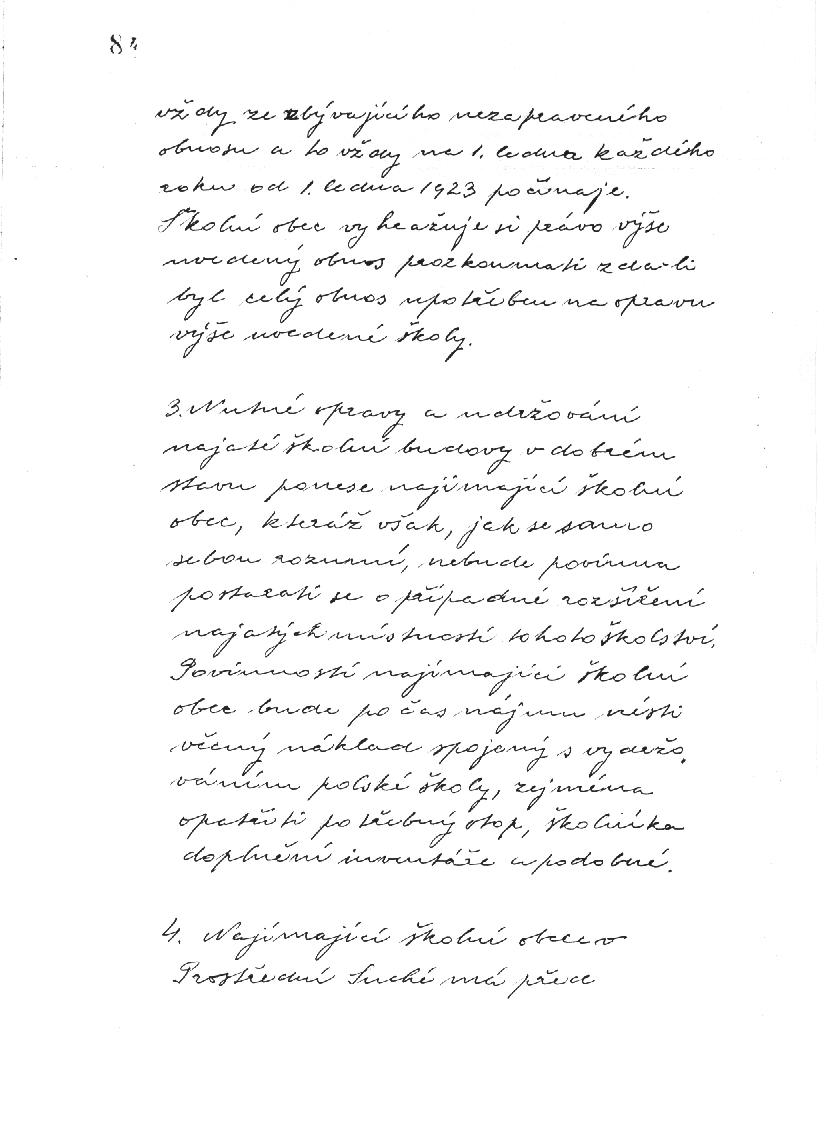 84
vždy ze zbývajícího nezapraveného
obnosu a to vždy na 1. ledna každého
roku od 1. ledna 1923 počínaje.
Školní obec vyhražuje si právo výše
uvedený obnos prozkoumati zda-li
byl celý obnos upotřeben na opravu
výše uvedené školy.
3. Nutné opravy a udržování
najaté školní budovy v dobrém
stavu ponese najímající školní
obec, kteráž však, jak se samo
sebou rozumí, nebude povinna
postarati se o případné rozšíření
najatých místností tohoto školství.
Povinností najímající školní
obec bude po čas nájmu nésti
věcný náklad spojený s vydržo,
váním polské školy, zejména
opatřiti potřebný otop, školníka
doplnění inventáře a podobné.
4. Najímající školní obec v
Prostřední Suché má před